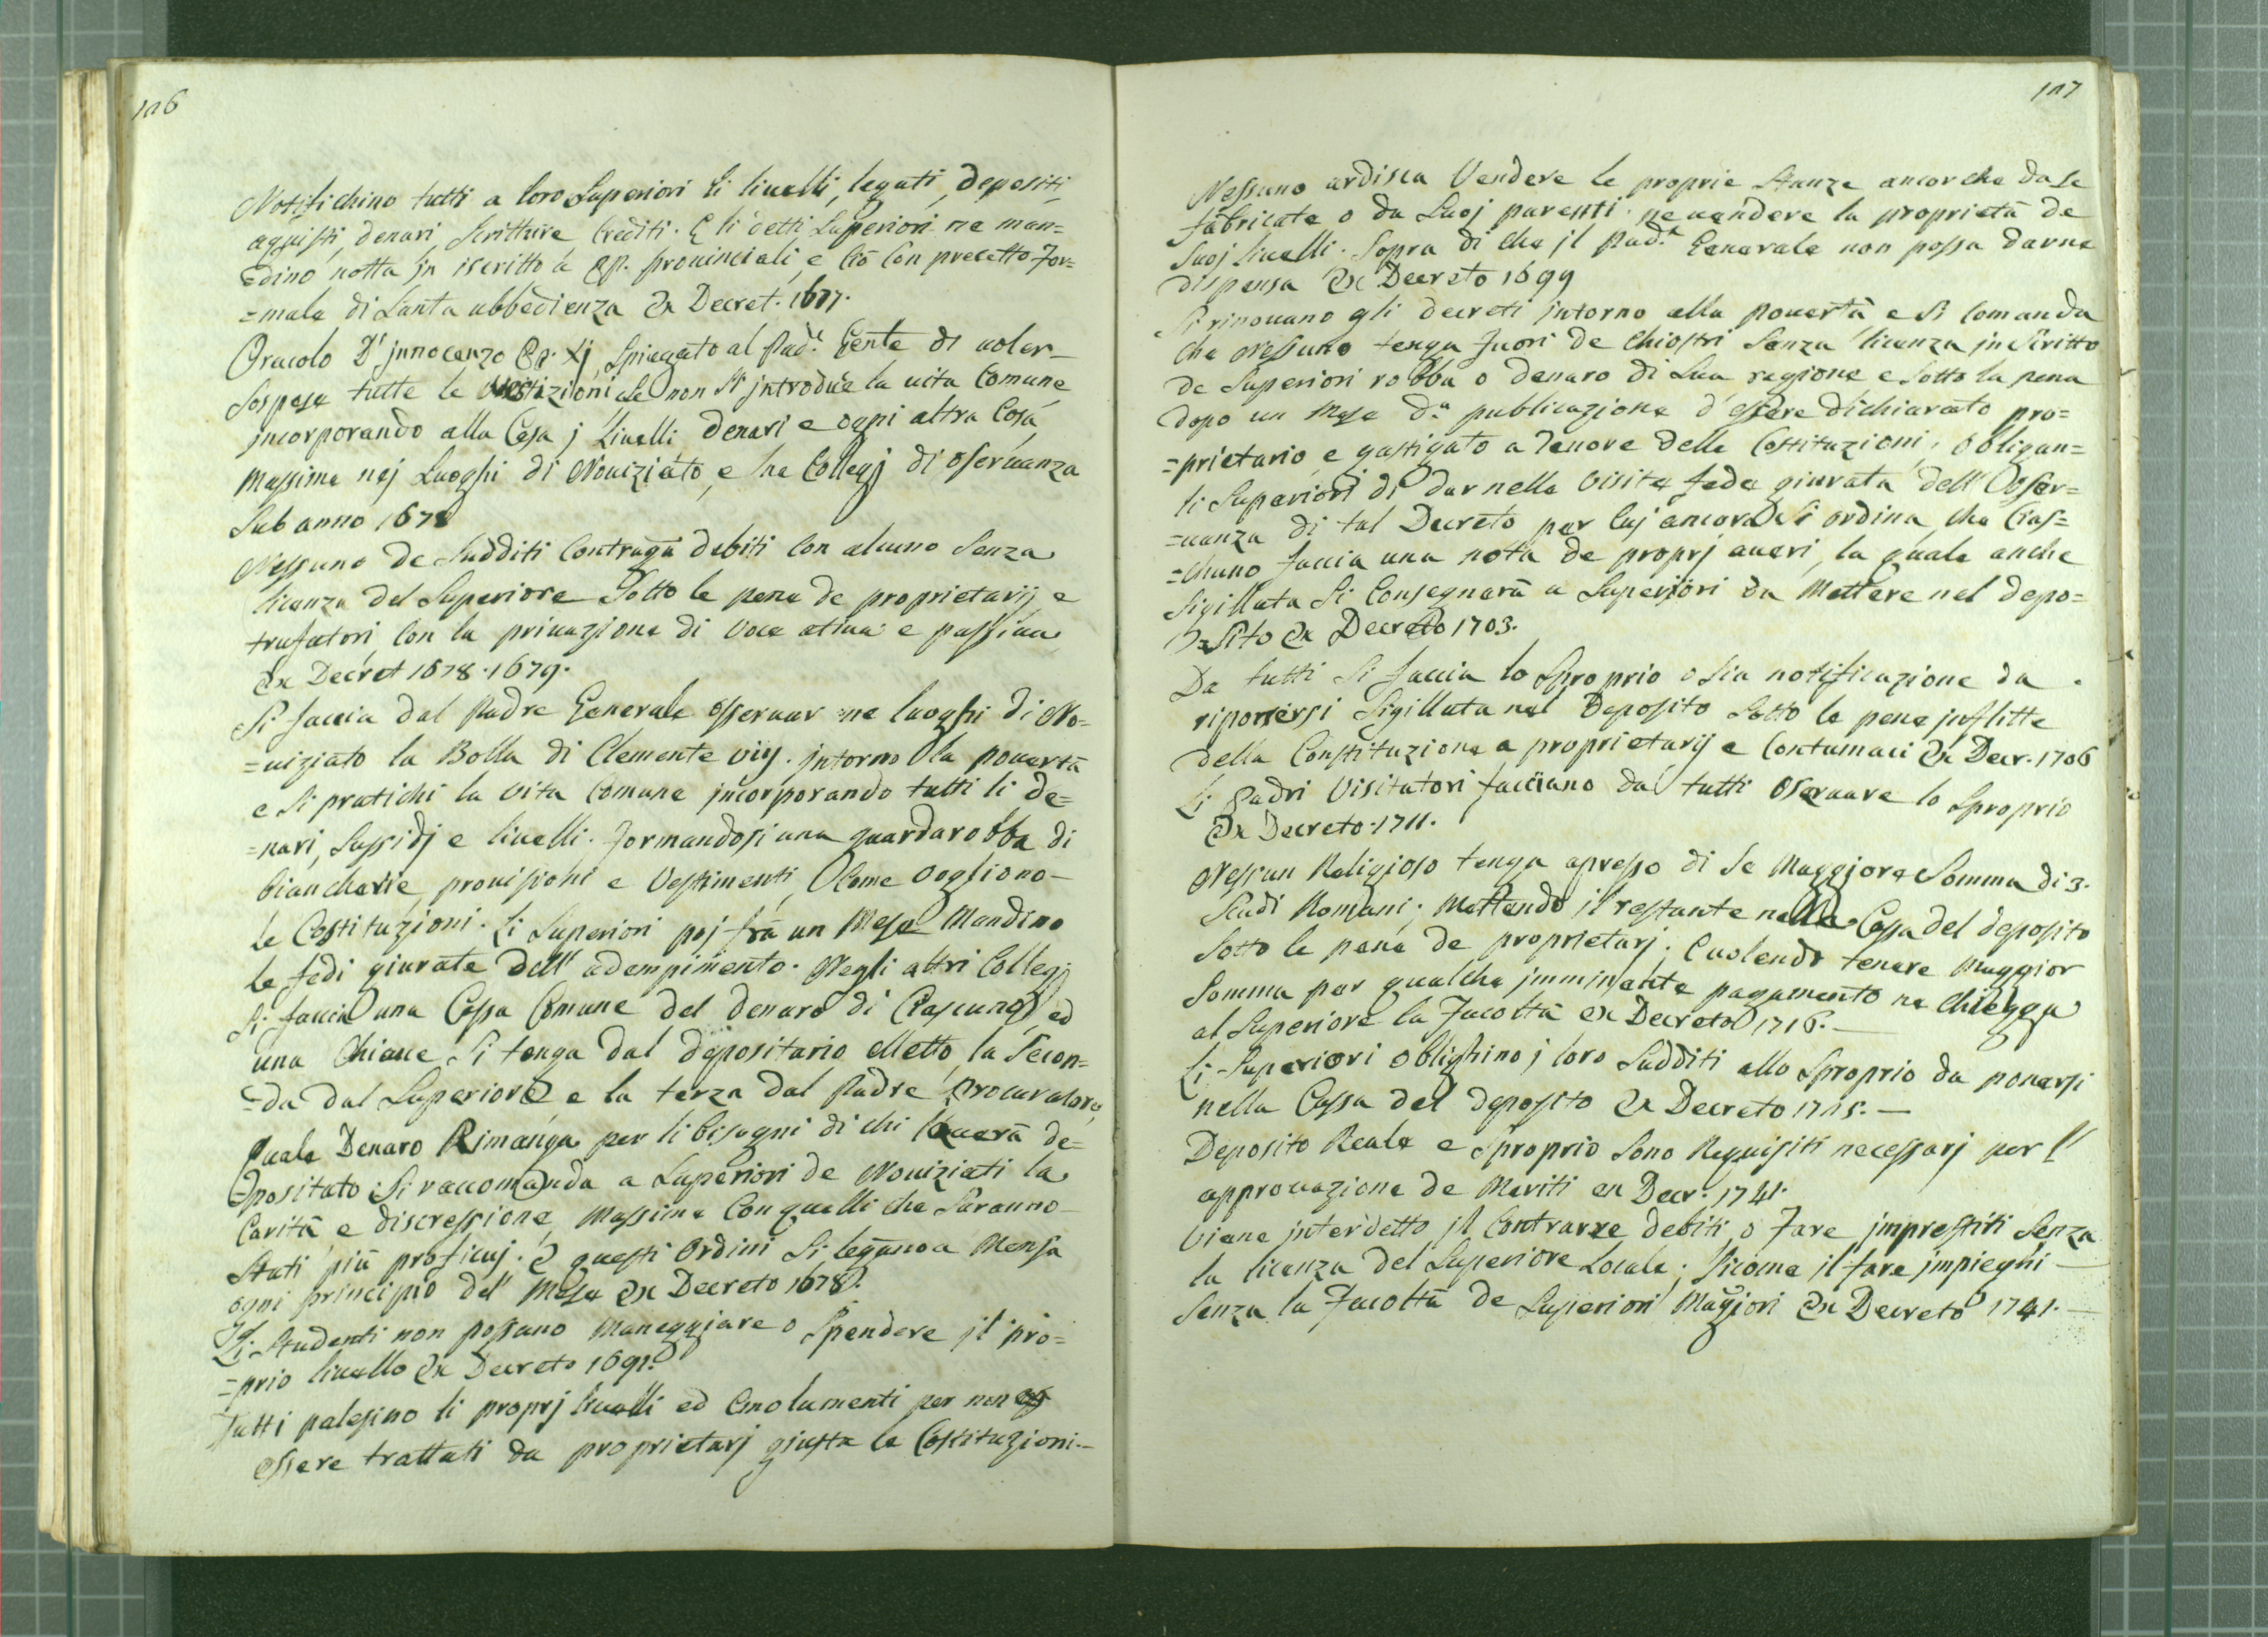 106
Notifichino tutti a loro Superiori li liuelli, legati, depositi,
aquisti, denari, Scritture Crediti. E li detti Superiori ne man=
=dino notta in iscritto a PP. prouinciali, e Ciò Con precetto For=
=male di Santa ubbedienza Ex Decret. 1677.
Oracolo D' jnnocenzo PP. Xj Spiegato al Pad.e Gen̄le di uoler
Sospese tutte le Vestizioni se non Si jntroduce la uita Comune
jncorporando alla Casa j Liuelli Denari e ogni altra Cosa,
Massime nej Luoghi di Nouiziato, e ne Collegj di oseruanza
Sub anno 1678
Nessuno de Sudditi Contraga debiti Con alcuno Senza
licenza del Superiore Sotto le pene de proprietarij e
trufatori, Con la priuazione di Voce atiua e passiua
Ex Decret 1678. 1679.
Si faccia dal Padre Generale osseruar ne luoghi di No=
=uiziato la Bolla di Clemente viij. jntorno la pouertà
e Si pratichi la Vita Comune jncorporando tutti li de=
=nari, Sussidj e liuelli. Formandosi una guardarobba di
biancherie, prouisioni e Vestimenti, Come Vogliono-
le Costituzioni. Li Superiori poj frà un Mese Mandino
le fedi giurate dell' adempimento. Negli altri Collegj
Si faccia una Cassa Comune del denaro di Ciascuno, ed
una Chiaue Si tenga dal depositario elletto, la Secon=
=da dal Superiore e la terza dal Padre Procuratore,
Quale Denaro Rimanga per li bisogni di chi l'auerà de=
=positato. Si raccomanda a Superiori de Nouiziati la
Carità e discressione, Massime Con quelli che Saranno
Stati più proficuj. E questi Ordini Si leganno a Mensa
ogni principio del Mese Ex Decreto 1678.
Li Studenti non possano Maneggiare o Spendere jl pro=
=prio liuello Ex Decreto 1691.
Tutti palesino li proprj liuelli ed Emolumenti per non
essere trattati da proprietarj giusta le Costituzioni.-
107
Nessuno ardisca Vendere le proprie Stanze ancorche da Se
fabricate o da Suoj parenti. ne uendere la proprietà de
Suoj liuelli. Sopra di che jl Pad.e Generale non possa darne
dispensa Ex Decreto 1699
Si rinouano gli decreti jntorno alla Pouertà e Si Comanda
che Nessuno tenga Fuori de Chiostri Senza licenza jn Scritto
de Superiori robba o denaro di Sua ragione e Sotto la pena
dopo un Mese d.a publicazione d'essere dichiarato pro=
=prietario, e gastigato a Tenore delle Costituzioni, obligan=
li Superiori di dar nella Visita fede giurata dell' Osser=
=uanza di tal Decreto per Cuj ancora Si ordina, che Cias=
=chuno faccia una nota de proprj aueri, la quale anche
Sigillata Si Consegnarà a Superiori da Mettere nel depo=
=Sito Ex Decreto 1703.
Da tutti Si faccia lo Sproprio o sia notificazione da
riponersi Sigillata nel Deposito Sotto le pene jnflitte
della Constituzione a proprietarij e Contumaci Ex Decr. 1706
Li Padri Visitatori facciano da tutti Oseruare lo Sproprio
Ex Decreto. 1711.
Nessun Religioso tenga apresso di Se Maggiore Somma di 3.
Scudi Romani; Mettendo jl restante nella Cassa del deposito
Sotto le pene de proprietarj. E uolendo tenere Maggior
Somma per qualche jmminente pagamento ne Chiegga
al Superiore la Facoltà ex Decreto 1716.-
Li Superiori Oblighino j loro Sudditi allo Sproprio da ponersi
nella Cassa del Deposito Ex Decreto 1725.-
Deposito Reale e Sproprio Sono Requisiti necessarj per l'
approuazione de Meriti ex Decr. 1741.
Viene jnterdetto jl Contrarre debiti, o Fare jmprestiti Senza
la licenza del Superiore Locale; Sicome il fare jmpieghi -
Senza la Facoltà de Superiori Magiori Ex Decreto 1741.-